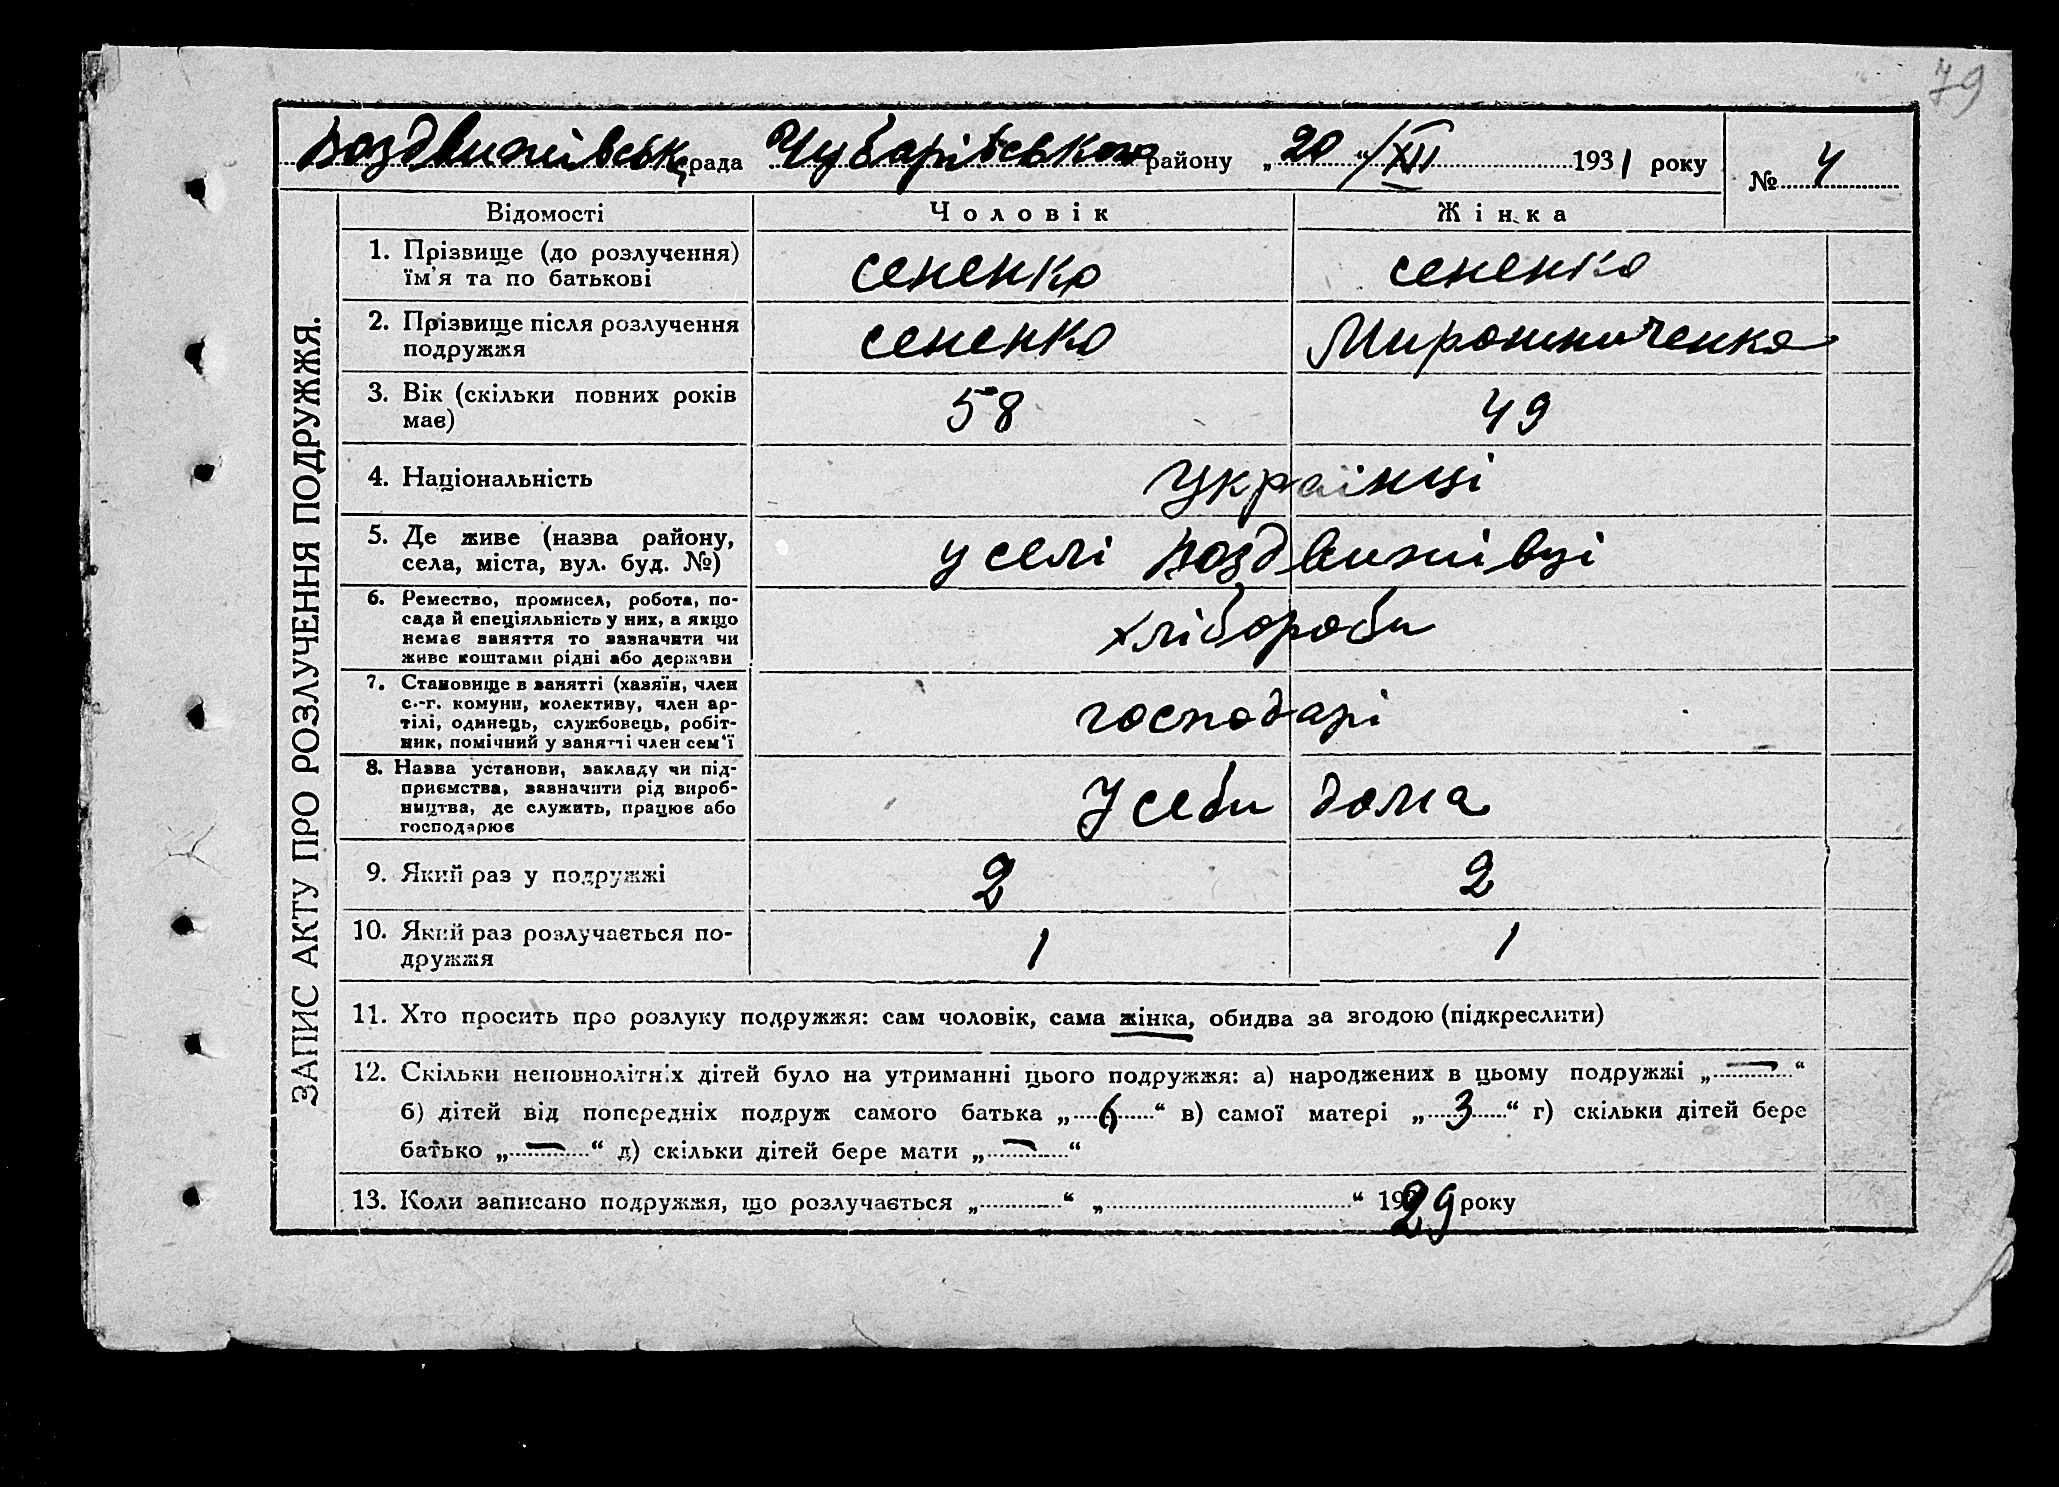 79
Воздвижівська рада Чубарівського району „20“/XII 1931 року № 4
ЗАПИС АКТУ ПРО РОЗЛУЧЕННЯ ПОДРУЖЖЯ.
Відомості Чоловік Жінка
1. Прізвище (до розлучення) їм'я та по батькові сененко сененко
2. Прізвище після розлучення подружжя сененко Мирошниченко
3. Вік (скільки повних років має) 58 49
4. Національність українці
5. Де живе (назва району, села, міста, вул. буд. №) у селі Воздвижівці
6. Ремество, промисел, робота, по-
сада й спеціяльність у них, а якщо
немає заняття то зазначити чи
живе коштами рідні або держави хлібороби
7. Становище в занятті (хазяїн, член
с.-г. комуни, колективу, член ар-
тілі, одинець, службовець, робіт-
ник, помічний у занятті член сем'ї господарі
8. Назва установи, закладу чи під-
приємства, зазначити рід вироб-
ництва, де служить, працює або
господарює У себи дома
9. Який раз у подружжі 2 2
10. Який раз розлучається по-
дружжя 1 1
11. Хто просить про розлуку подружжя: сам чоловік, сама жінка, обидва за згодою (підкреслити)
12. Скільки неповнолітніх дітей було на утриманні цього подружжя: а) народжених в цьому подружжі „—“
б) дітей від попередніх подруж самого батька „6“ в) самої матері „3“ г) скільки дітей бере
батько „—“ д) скільки дітей бере мати „—“
13. Коли записано подружжя, що розлучається „ “ „ “ 1929 року